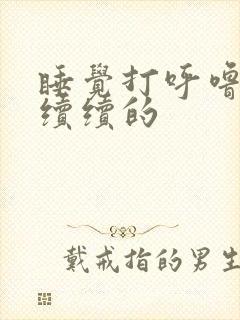 睡覺打呼嚕
續續的
戴戒指的男生